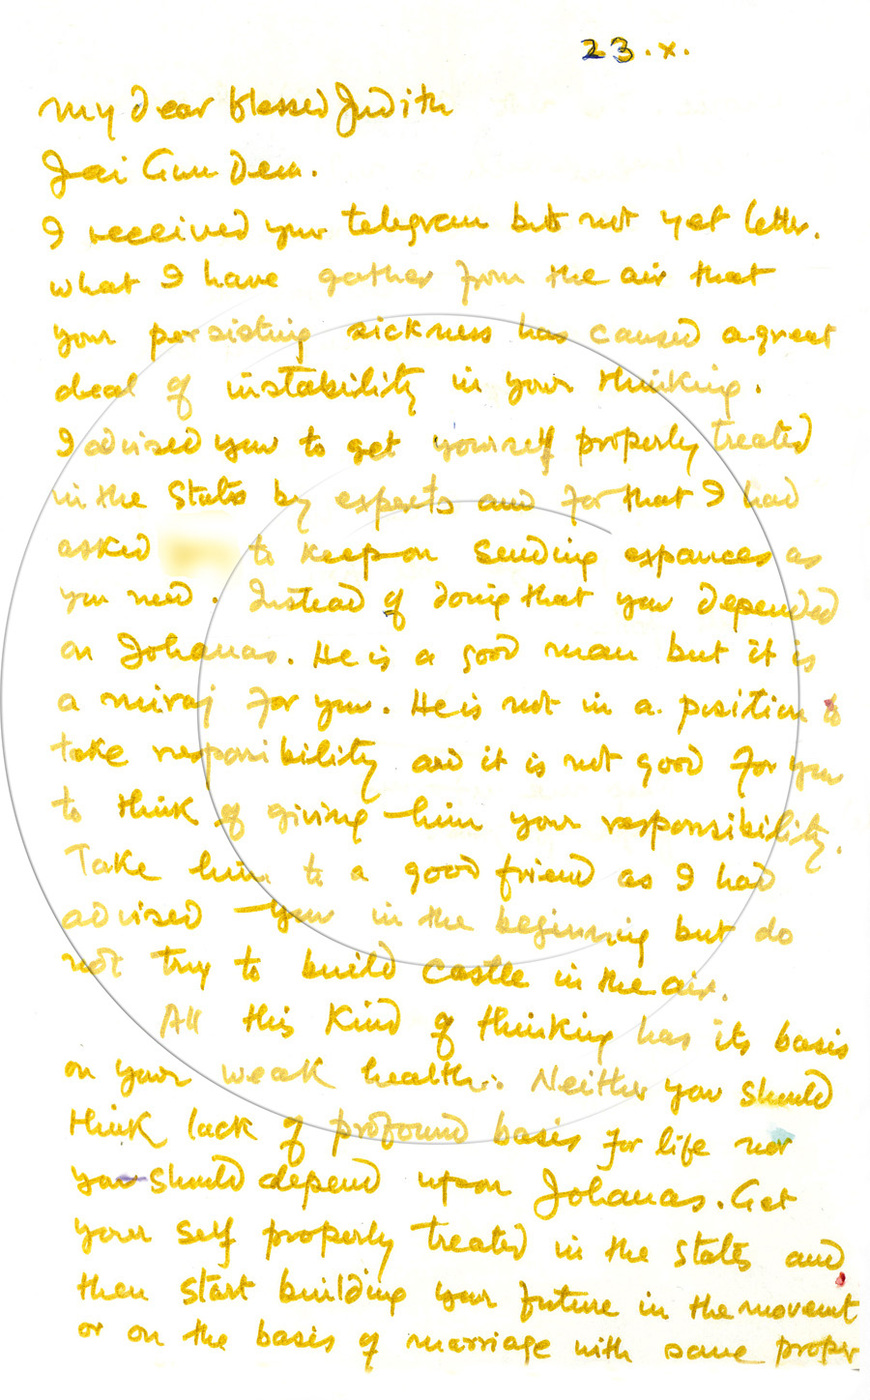 23.x.
My dear blessed Judith
Jai Guru Dev.
I received your telegram but not yet letter.
what I have gather from the air that
your persisting sickness has caused a great
deal of instability in your thinking.
I advised you to get yourself properly treated
in the States by experts and for that I had
asked to keep on sending expances as
you need. Instead of doing that you depended
on Johanas. He is a good man but it is
a miraj for you. He is not in a position to
take responsibility and it is not good for you
to think of giving him your responsibility.
Take him to a good friend as I had
advised you in the beginning but do
not try to build castle in the air.
All this kind of thinking has its basis
on your weak health. Neither you should
think lack of profound basis for life nor
you should depend upon Johanas. Get
your self properly treated in the States and
then start building your future in the movemt
or on the basis of marriage with some proper